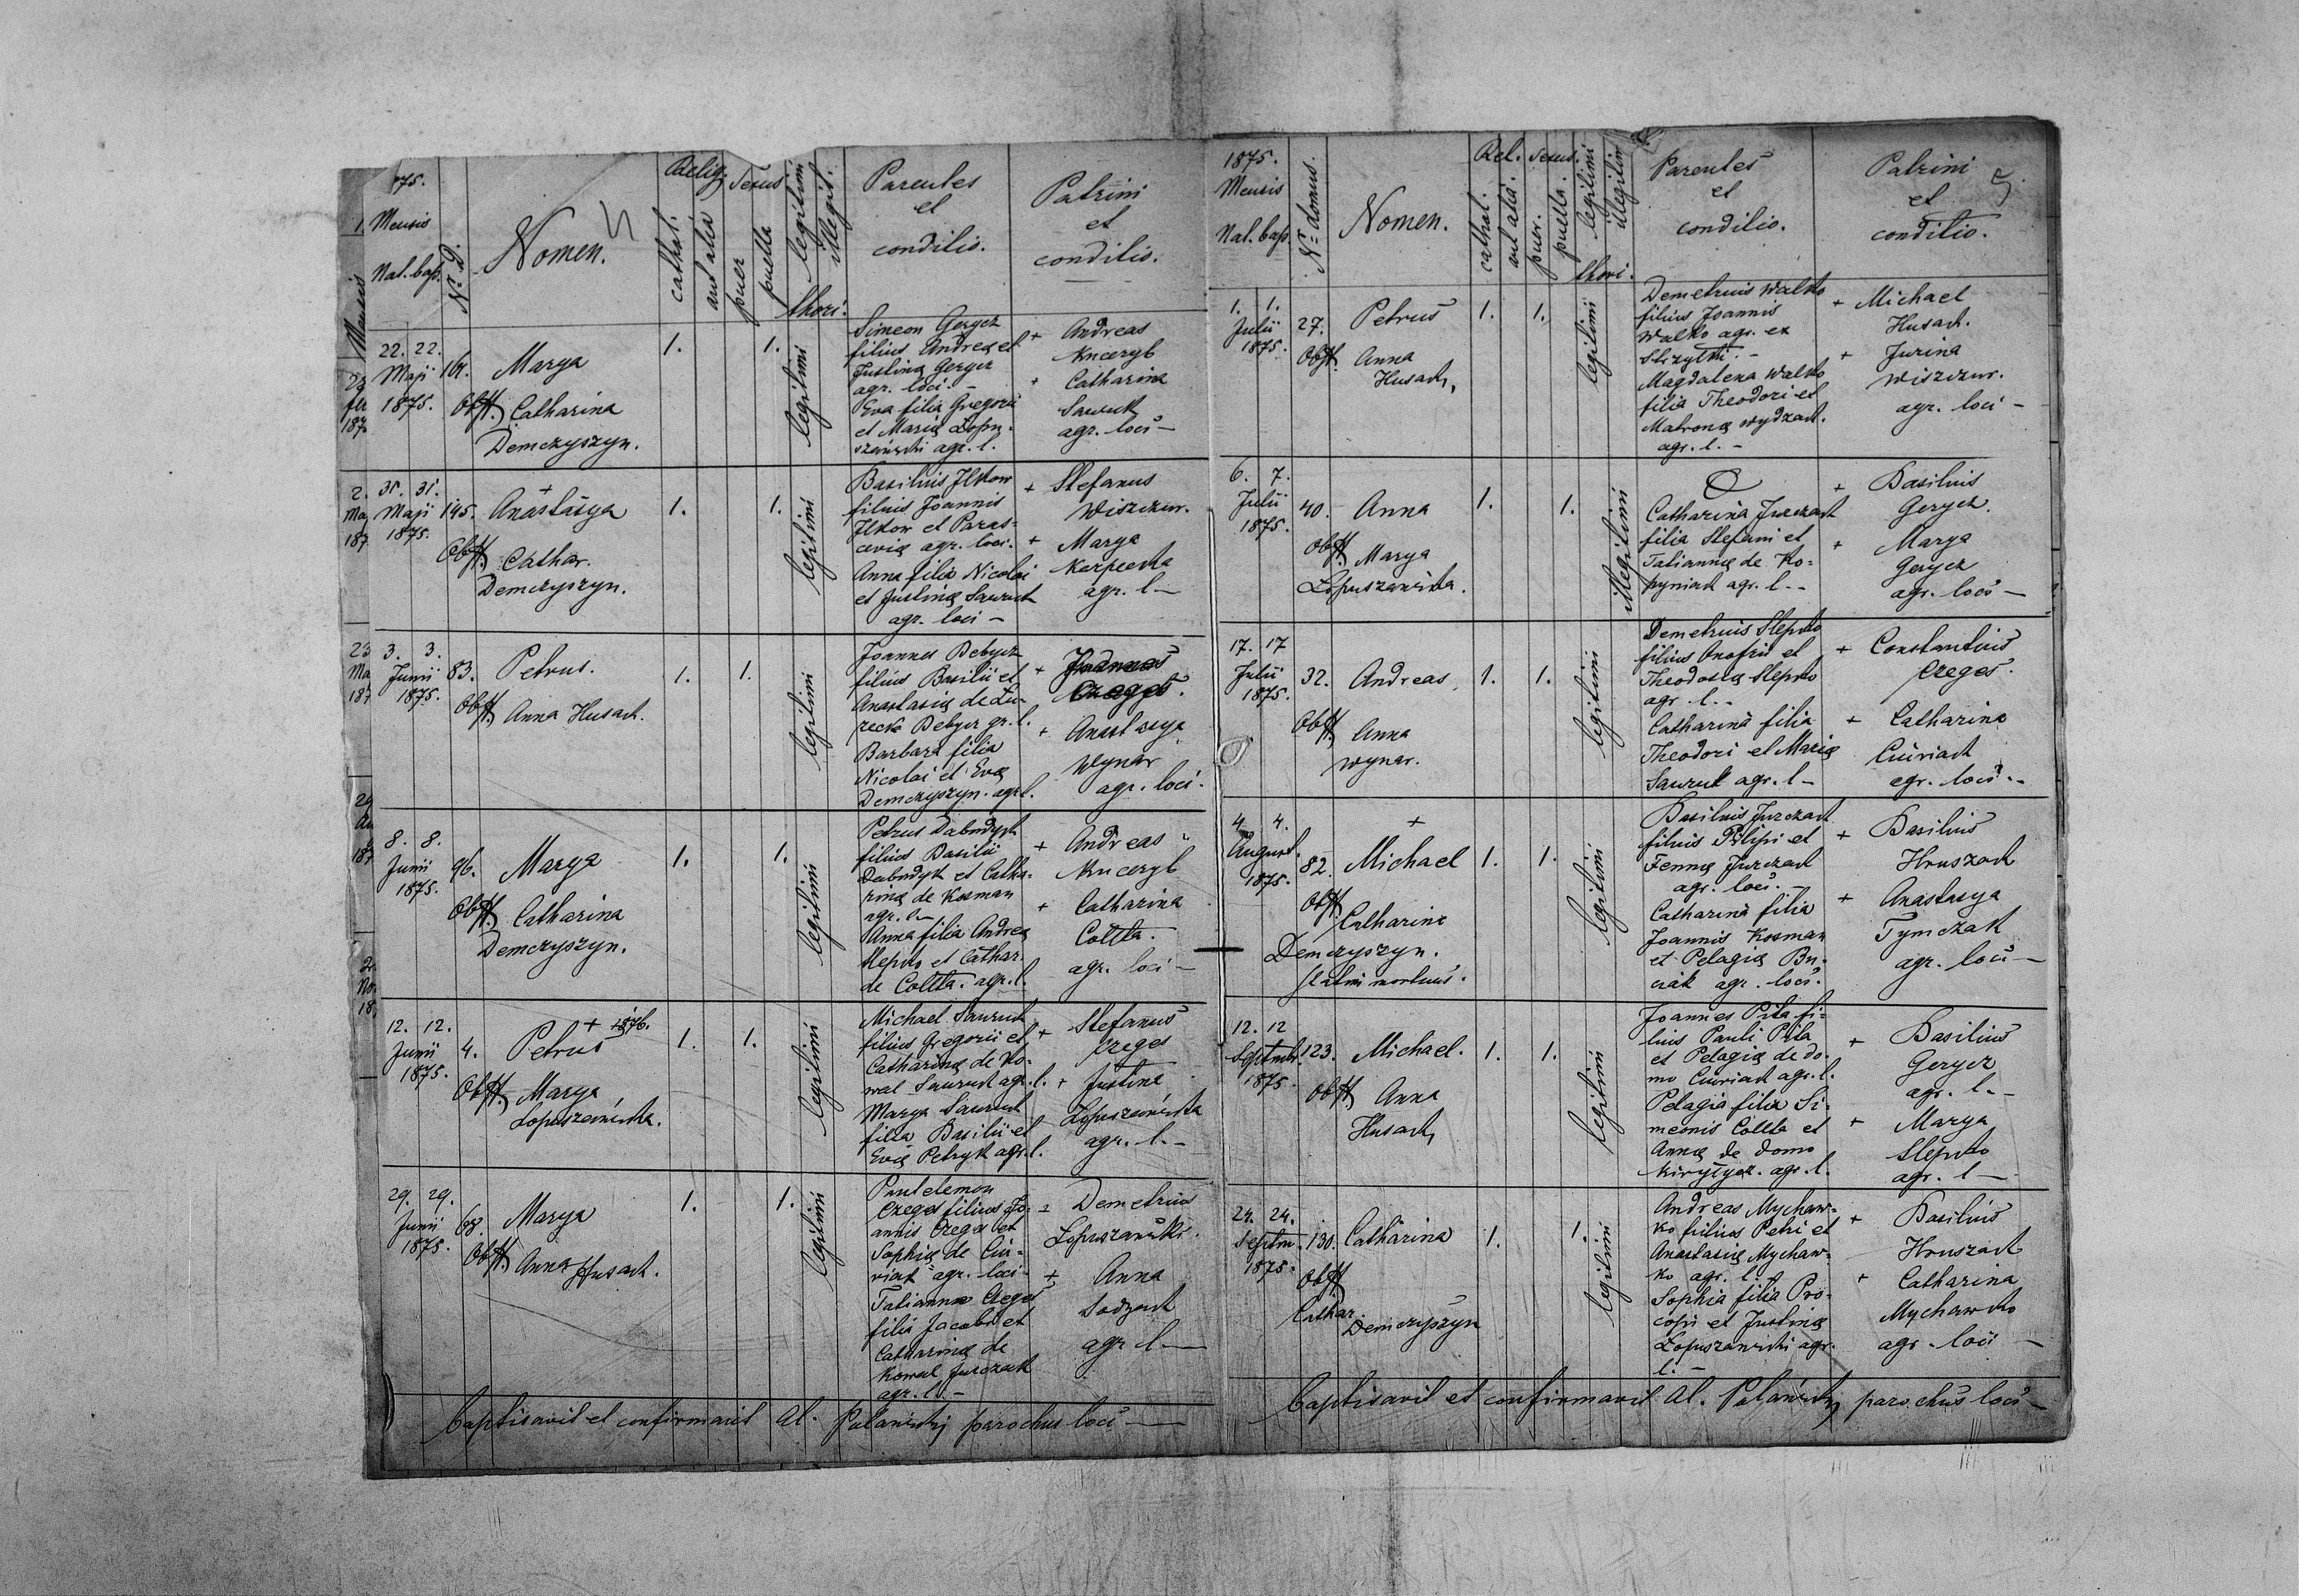 1875.
Mensis
Nat. bap.
N: D.
Nomen.
Relig.
cathol.
aut alia
Sexus
puer
puella
legitimi
illegit.
thori.
Parentes
et
conditio.
Patrini
et
conditio.
22. 22.
Maji
1875.
161.
Marya
Obst. Catharina
Demczyszyn.
1.
1.
legitimi
Simeon Gerycz
filius Andreę et
Justinę Gerycz
agr. loci. -
Eva filia Gregorii
et Marię Łopu-
szański agr. l.
+ Andreas
Kuceryb
+ Catharina
Sawruk
agr. loci -
31. 31.
Maji
1875.
145.
+
Anastasya
Obst. Cathar.
Demczyszyn.
1.
1.
legitimi
Basilius Ilkow
filius Joannis
Ilkow et Paras-
cevię agr. loci.
Anna filia Nicolai
et Justinę Sawruk
agr. loci -
+ Stefanus
Wiszczur.
+ Marya
Karpecka
agr. l -
3. 3.
Junii
1875.
83.
Petrus.
Obst. Anna Husak.
1.
1.
legitimi
Joannes Bebycz
filius Basilii et
Anastasię de Lu-
Bebycz gr. l.
Barbara filia
Nicolai et Evę
Demczyszyn. agr. l.
+ Joannes
Czeges.
+ Anastasya
Wynar
agr. loci.
8. 8.
Junii
1875.
96.
Marya
Obst. Catharina
Demczyszyn.
1.
1.
legitimi
Petrus Dabudyk
filius Basilii
Dabudyk et Catha-
rinę de Kosman
agr. l -
Anna filia Andreę
Slepko et Cathar.
de Coltta. agr. l.
+ Andreas
Kuceryb
+ Catharina
Coltta.
agr. loci -
12. 12.
Junii
1875.
4.
+ 1876.
Petrus
Obst. Marya
Lopuszańska.
1.
1.
legitimi
Michael Sawruk
filius Gregorii et
Catharinę de Ko-
wal Sawruk agr. l.
Marya Sawruk
filia Basilii et
Evę Petryk agr. l.
+ Stefanus
Czeges
+ Justina
Łopuszańska
agr. l. -
29. 29.
Junii
1875.
68.
Marya
Obst. Anna Husak.
1.
1.
legitimi
Pantelemon
Czeges filius Jo-
annis Czeges et
Sophię de Ciu-
riak agr. loci
Tatianna Czeges
filia Jacobi et
Catharinę de
Kowal Jurczak
agr. l. -
+ Demetrius
Łopuszański.
+ Anna
agr l -
baptisavit et confirmavit Al. Polański parochus loci -
1875.
Mensis
Nat. bap.
N: domus.
Nomen.
Rel.
cathol.
aut alia.
Sexus.
puer.
puella.
legitimi
illegitim
thori.
Parentes
et
conditio.
Patrini
et
conditio.
5.
1. 1.
Julii
1875.
27.
Petrus
Obst. Anna
Husak,
1.
1.
legitimi
Demetrius Walko
filius Joannis
Walko agr. ex
Strzylki. -
Magdalena Walko
filia Theodori et
Matronę Wydzak.
agr. l. -
+ Michael
Husak.
+ Jurina
Wiszczur.
agr. loci -
6. 7.
Julii
1875.
40.
Anna
Obst. Marya
Łopuszańska.
1.
1.
illegitimi
Catharina Jurczak
filia Stefani et
Tatiannę de Ko-
pyniak agr. l. -
+ Basilius
Gerycz.
+ Marya
Gerycz
agr. loci -
17. 17
Julii
1875.
32.
Andreas.
Obst. Anna
Wynar.
1.
1.
legitimi
Demetrius Slepko
filius Onofrii et
Theodosię Slepko
agr. l. -
Catharina filia
Theodori et Marię
Sawruk agr. l -
+ Constantinus
Czeges.
+ Catharina
Ciuriak
agr. loci. -
4. 4.
August.
1875.
82.
+
Michael
Obst. Catharina
Demczyszyn.
statim mortuus.
1.
1.
legitimi
Basilius Jurczak
filius Philipi et
Fennę Jurczak
agr. loci. -
Catharina filia
Joannis Kosman
et Pelagię Bu-
ciak agr. loci.
+ Basilius
Hruszak
+ Anastasya
Tymczak
agr. loci -
12. 12
Septmb.
1875.
123.
Michael.
Obst. Anna
Husak,
1.
1.
legitimi
Joannes Pita fi-
lius Pauli Pita
et Pelagię de do-
mo Ciuriak agr. l.
Pelagia filia Si-
meonis Coltta et
Annę de domo
agr. l.
+ Basilius
Gerycz
agr. l. -
+ Marya
Slepko
agr. l -
24. 24.
Septm.
1875.
130.
Catharina
Obst
Cathar.
Demczyszyn
1.
1.
legitimi
Andreas Mychaw-
ko filius Petri et
Anastasię Mychaw-
ko agr. l. -
Sophia filia Pro-
copii et Justinę
Łopuszański agr.
l. -
+ Basilius
Hruszak
+ Catharina
Mychawko
agr. loci -
baptisavit et confirmavit Al. Polański parochus loci -